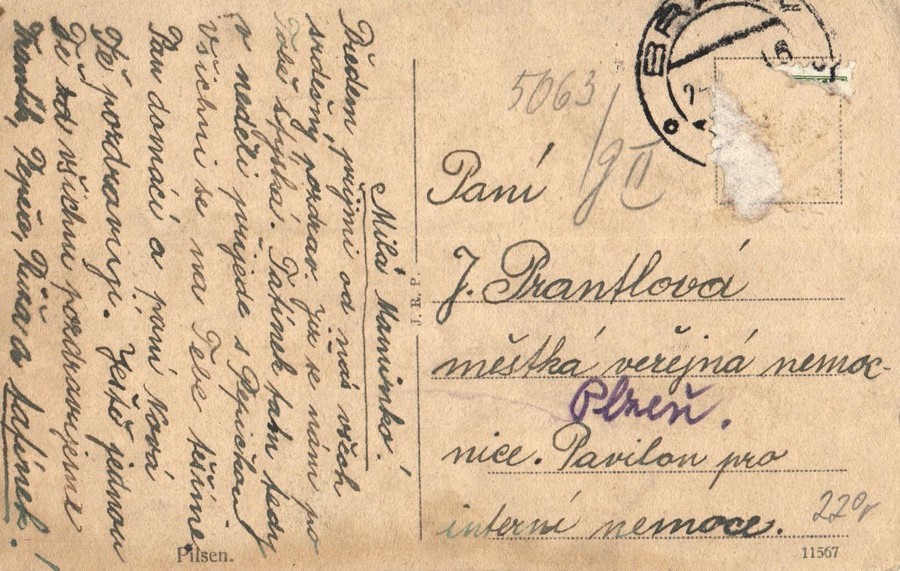 Milá Maminko!
Předem přijmi od nás všech
srdečný pozdrav. Již se nám po
Tobě stýská. Tatínek tam tedy
v neděli přijede s Pepičkou
Všichni se na Tebe těšíme,
Pan domácí a paní Nová
Tě pozdravují. Ještě jednou
Tě všichni pozdravujeme
Pepča, a tatínek!
5063
g II
Paní
J. Prantlová
městká veřejná nemoc-
Plzeň.
nice. Pavilon pro
interní nemoce.
220,
J. E. P.
Pilsen.
11567